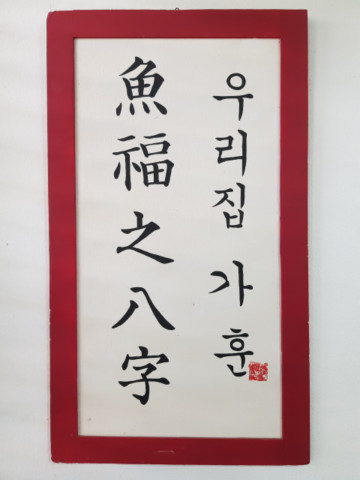 우리집 가훈
魚福之八字